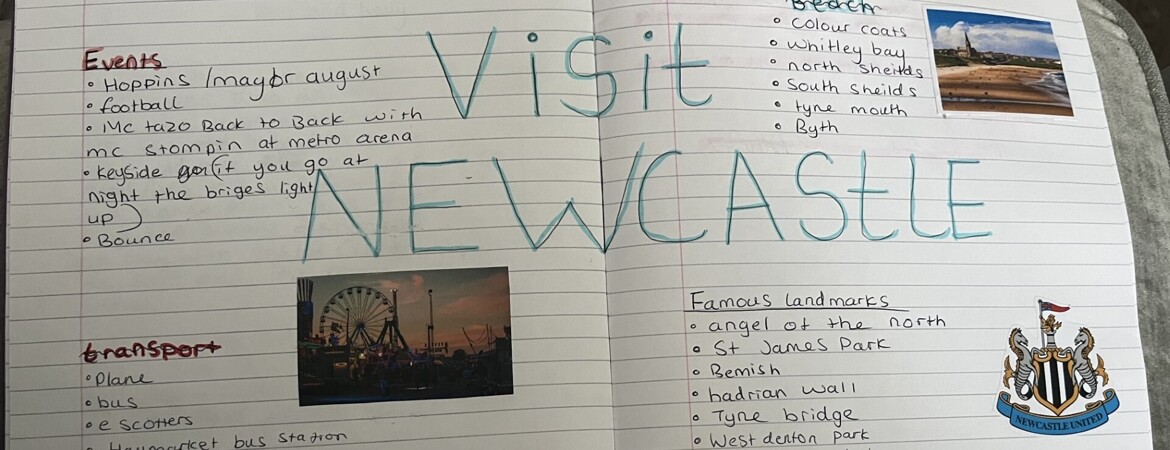 Visit
NEWCAStLE
Events
• Hoppins /mayor august
• football
• Mc tazo Back to Back with
mc stompin at metro arena
• Keyside (if you go at
night the briges light
up)
• Bounce
transport
• Plane
• bus
• e scotters
• Haymarket bus station
Beach
• Colour coats
• Whitley bay
• north sheilds
• South Sheilds
• tyne mouth
• Byth
Famous landmarks
• angel of the north
• St James Park
• Bemish
• hadrian wall
• Tyne bridge
• West denton park
NEWCASTLE UNITED